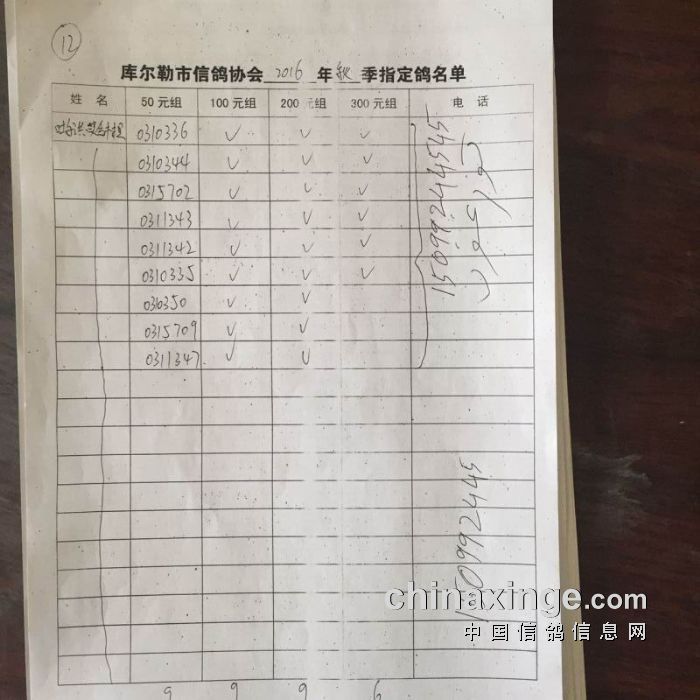 12
库尔勒市信鸽协会 2016 年 秋 季指定鸽名单
姓 名 50元组 100元组 200元组 300元组 电 话
0310336 ✓ ✓ ✓
0310344 ✓ ✓ ✓
0315702 ✓ ✓ ✓
0311343 ✓ ✓ ✓
0311342 ✓ ✓ ✓
0310335 ✓ ✓ ✓
0310350 ✓ ✓
0315709 ✓ ✓
0311347 ✓ ✓
15099244545
150992445
9 9 9 6
chinaxinge.com
中国信鸽信息网